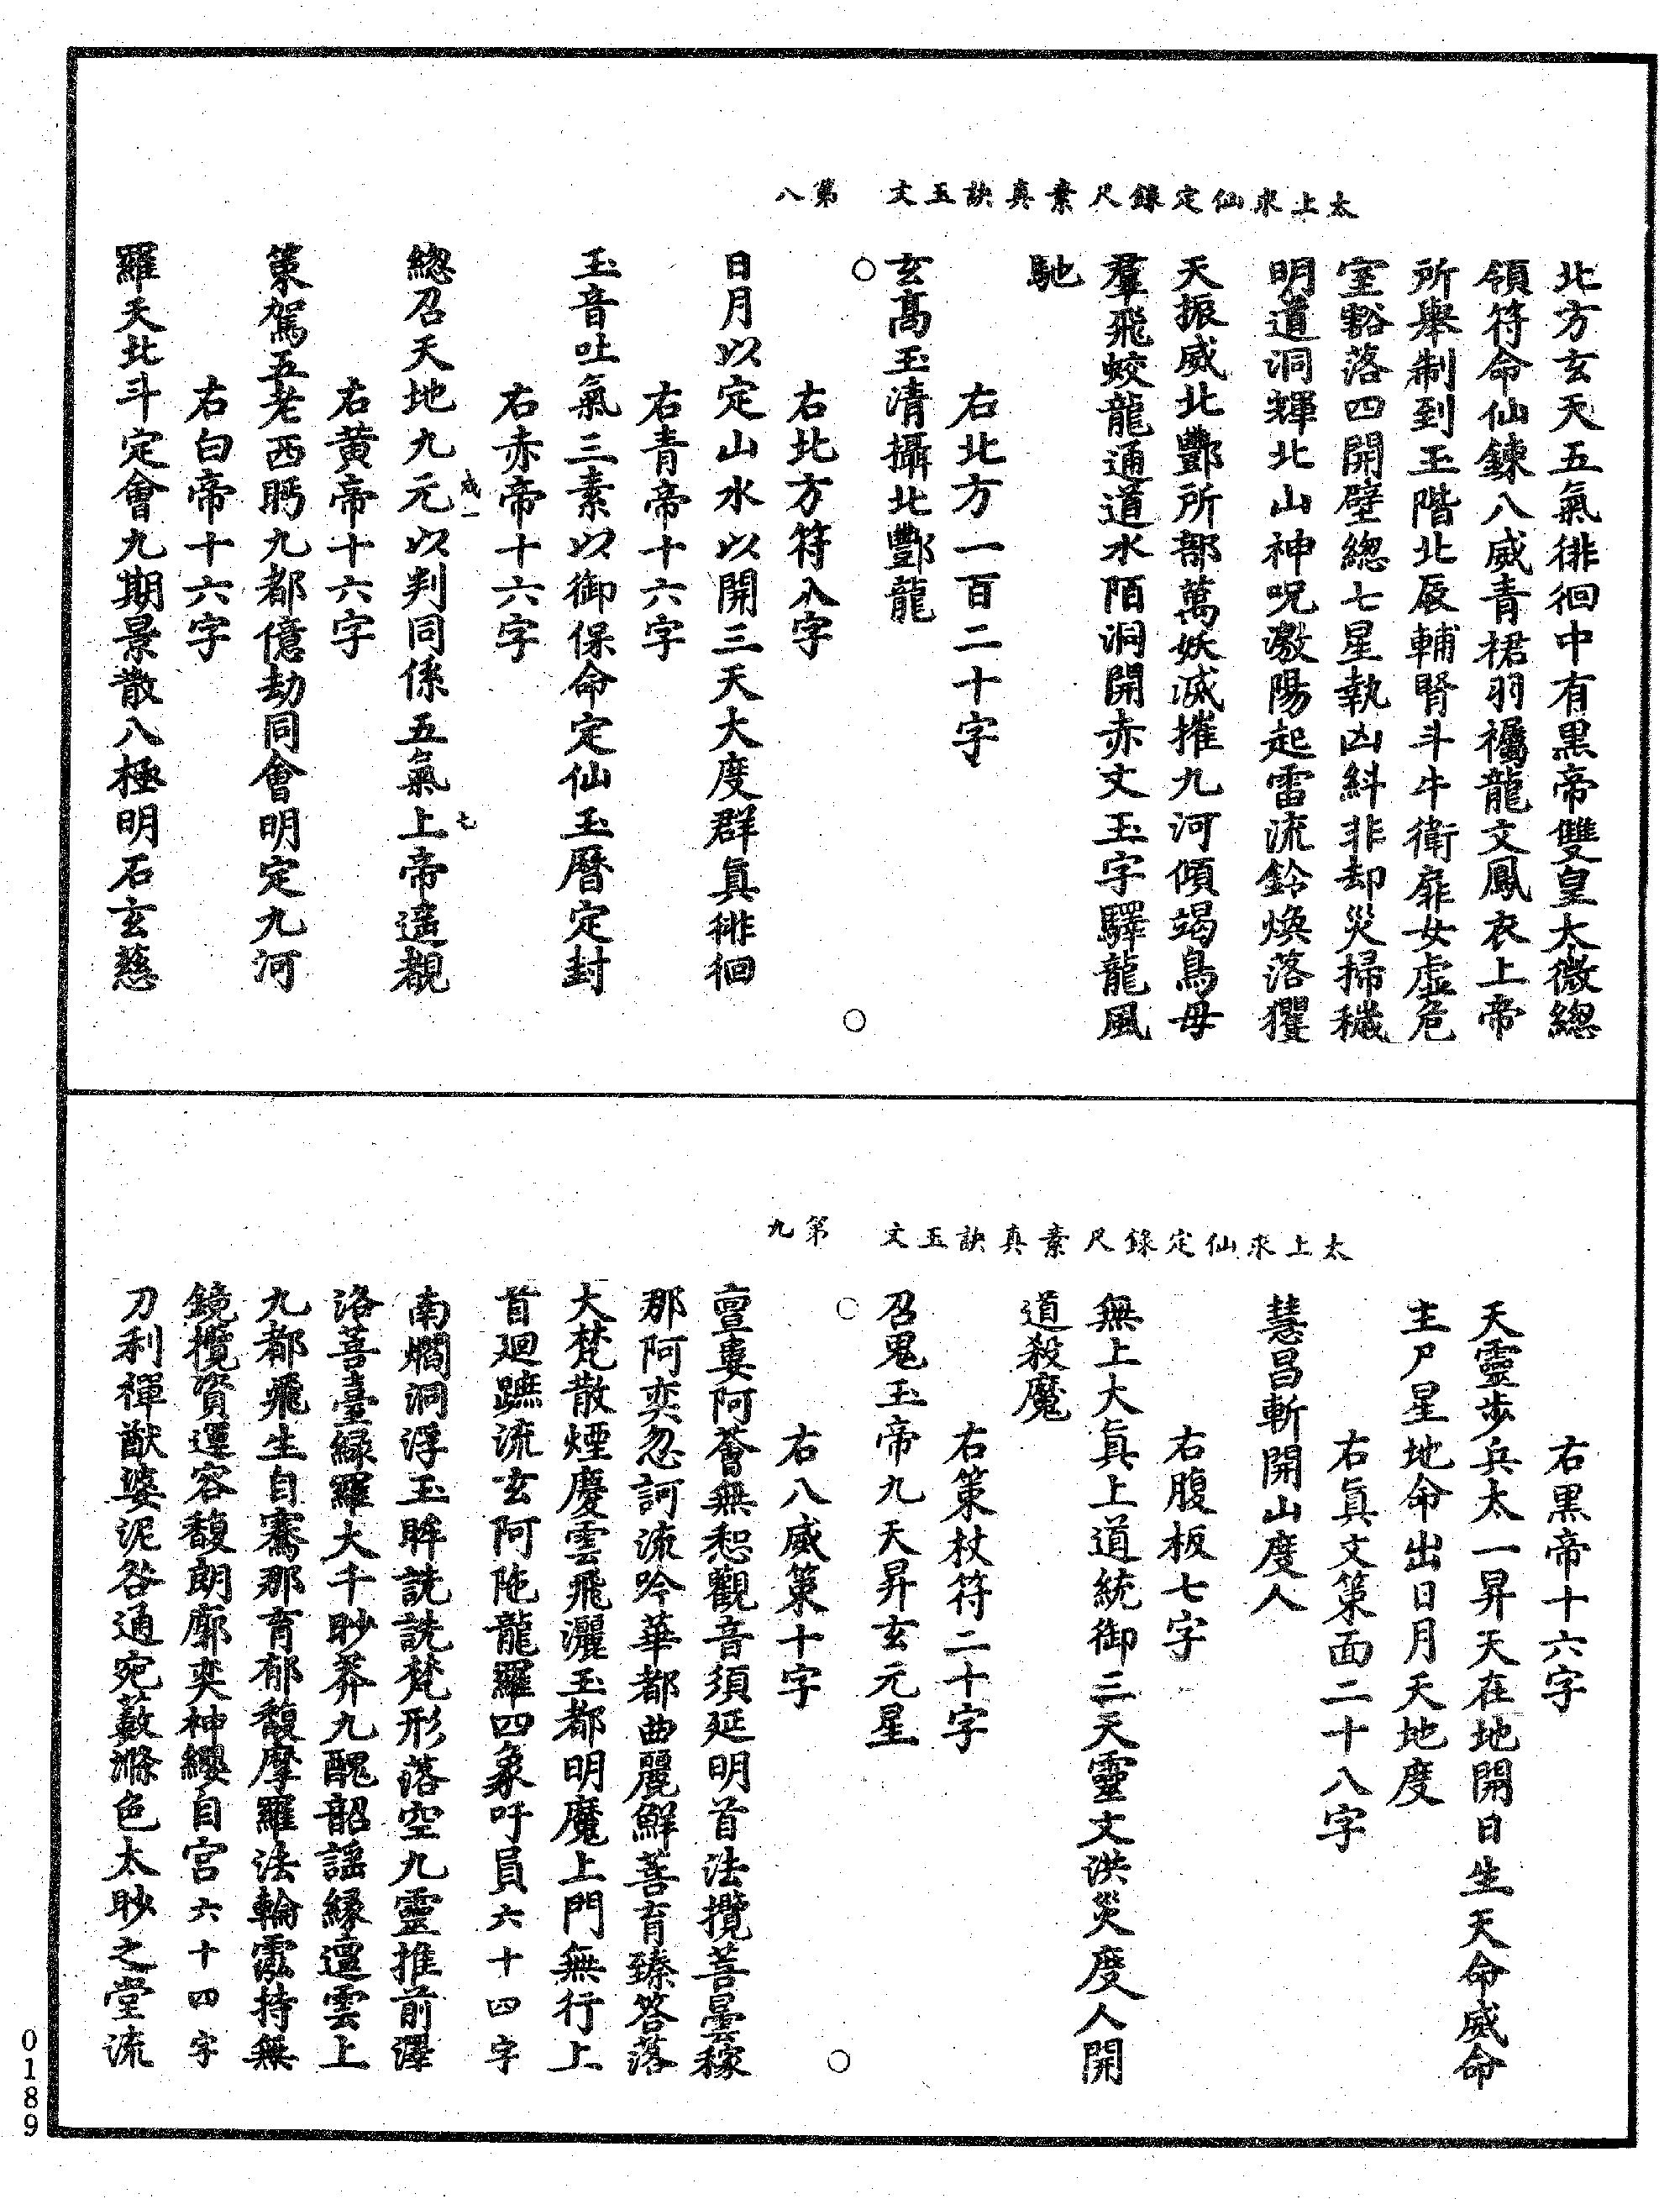 太上求仙定錄尺素真訣玉文　第八
北方玄天五氣徘徊中有黑帝雙皇太微總
領符命仙鍊八威青裙羽襡龍文鳳衣上帝
所舉制到玉階北辰輔腎斗牛衛扉女虛危
室豁落四開壁總七星執凶糾非却災掃穢
明道洞輝北山神呪激陽起雷流鈴煥落玃
天振威北酆所部萬妖滅摧九河傾竭鳥母
羣飛蛟龍通道水陌洞開赤文玉字驛龍風
馳
右北方一百二十字
玄高玉清攝北酆龍
○　○
右北方符八字
日月以定山水以開三天大度群真徘徊
右青帝十六字
玉音吐氣三素以御保命定仙玉曆定封
右赤帝十六字
成一　七
總召天地九元以判同係五氣上帝遥觀
右黃帝十六字
策駕五老西眄九都億劫同會明定九河
右白帝十六字
羅天北斗定會九期景散八極明石玄慈
太上求仙定錄尺素真訣玉文　第九
右黑帝十六字
天靈步兵太一昇天在地開日生天命威命
主尸星地命出日月天地度
右真文策面二十八字
慧昌斬開山度人
右腹板七字
無上大真上道統御三天靈文洪災度人開
道殺魔
右策杖符二十字
召鬼玉帝九天昇玄元星
○　○
右八威策十字
亶婁阿薈無惒觀音須延明首法攬菩曇稼
那阿奕忽訶流吟華都曲麗鮮菩育臻答落
大梵散煙慶雲飛灑玉都明魔上門無行上
首迴蹠流玄阿陁龍羅四象吁員六十四字
南爓洞浮玉眸詵詵梵形落空九靈推前澤
洛菩臺緑羅大千眇莽九醜韶謠緣邅雲上
九都飛生自騫那育郁馥摩羅法輪霐持無
鏡攬資運容馥朗廓奕神纓自宮六十四字
刀利禪猷婆泥咎通宛藪滌色太眇之堂流
0189